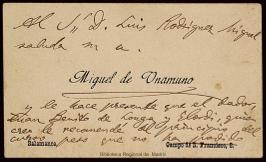 Al Sr. D. Luis Rodríguez Miguel
saluda s. a.
Miguel de Unamuno
y le hace presente que el dador,
Juan Benito de Longa y Elordi, quien
cree le recomendé al principio del
curso, pero que no ha podido
Salamanca, Campo de S. Francisco, 2.
Biblioteca Regional de Madrid